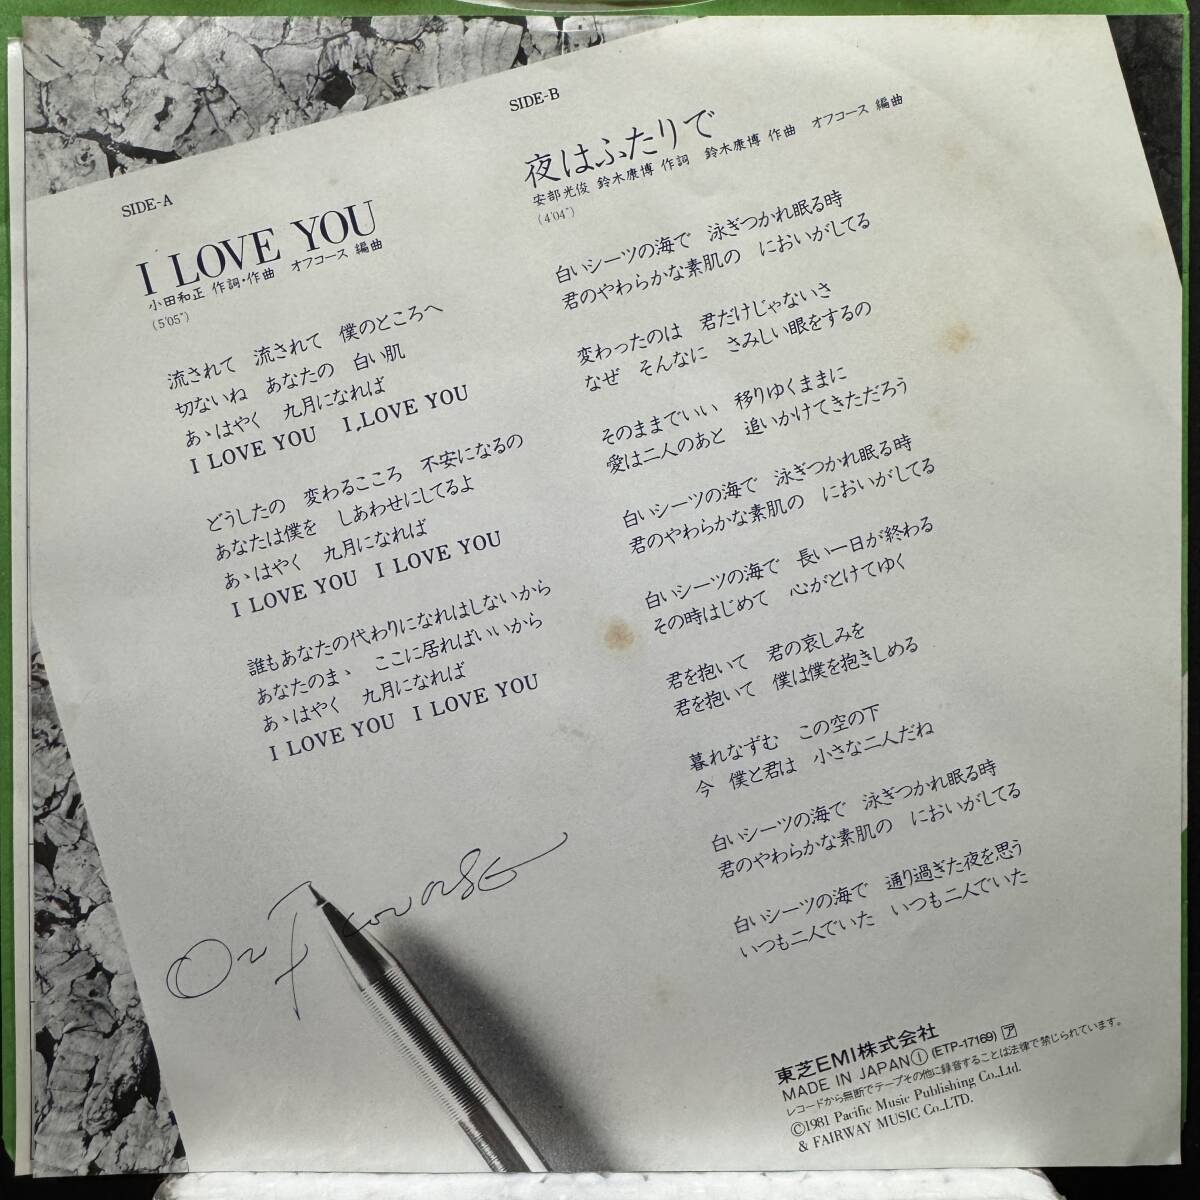 SIDE-A
I LOVE YOU
小田和正 作詞・作曲 オフコース 編曲
(5'05")
流されて 流されて 僕のところへ
切ないね あなたの 白い肌
あゝはやく 九月になれば
I LOVE YOU I LOVE YOU
どうしたの 変わるこころ 不安になるの
あなたは僕を しあわせにしてるよ
あゝはやく 九月になれば
I LOVE YOU I LOVE YOU
誰もあなたの代わりになれはしないから
あなたのまゝ ここに居ればいいから
あゝはやく 九月になれば
I LOVE YOU I LOVE YOU
Off COURSE
SIDE-B
夜はふたりで
安部光俊 鈴木康博 作詞 鈴木康博 作曲 オフコース 編曲
(4'04")
白いシーツの海で 泳ぎつかれ眠る時
君のやわらかな素肌の においがしてる
変わったのは 君だけじゃないさ
なぜ そんなに さみしい眼をするの
そのままでいい 移りゆくままに
愛は二人のあと 追いかけてきただろう
白いシーツの海で 泳ぎつかれ眠る時
君のやわらかな素肌の においがしてる
白いシーツの海で 長い一日が終わる
その時はじめて 心がとけてゆく
君を抱いて 君の哀しみを
君を抱いて 僕は僕を抱きしめる
暮れなずむ この空の下
今 僕と君は 小さな二人だね
白いシーツの海で 泳ぎつかれ眠る時
君のやわらかな素肌の においがしてる
白いシーツの海で 通り過ぎた夜を思う
いつも二人でいた いつも二人でいた
東芝EMI株式会社
MADE IN JAPAN Ⓘ (ETP-17169) ア
レコードから無断でテープその他に録音することは法律で禁じられています。
©1981 Pacific Music Publishing Co.,Ltd.
& FAIRWAY MUSIC Co.,LTD.